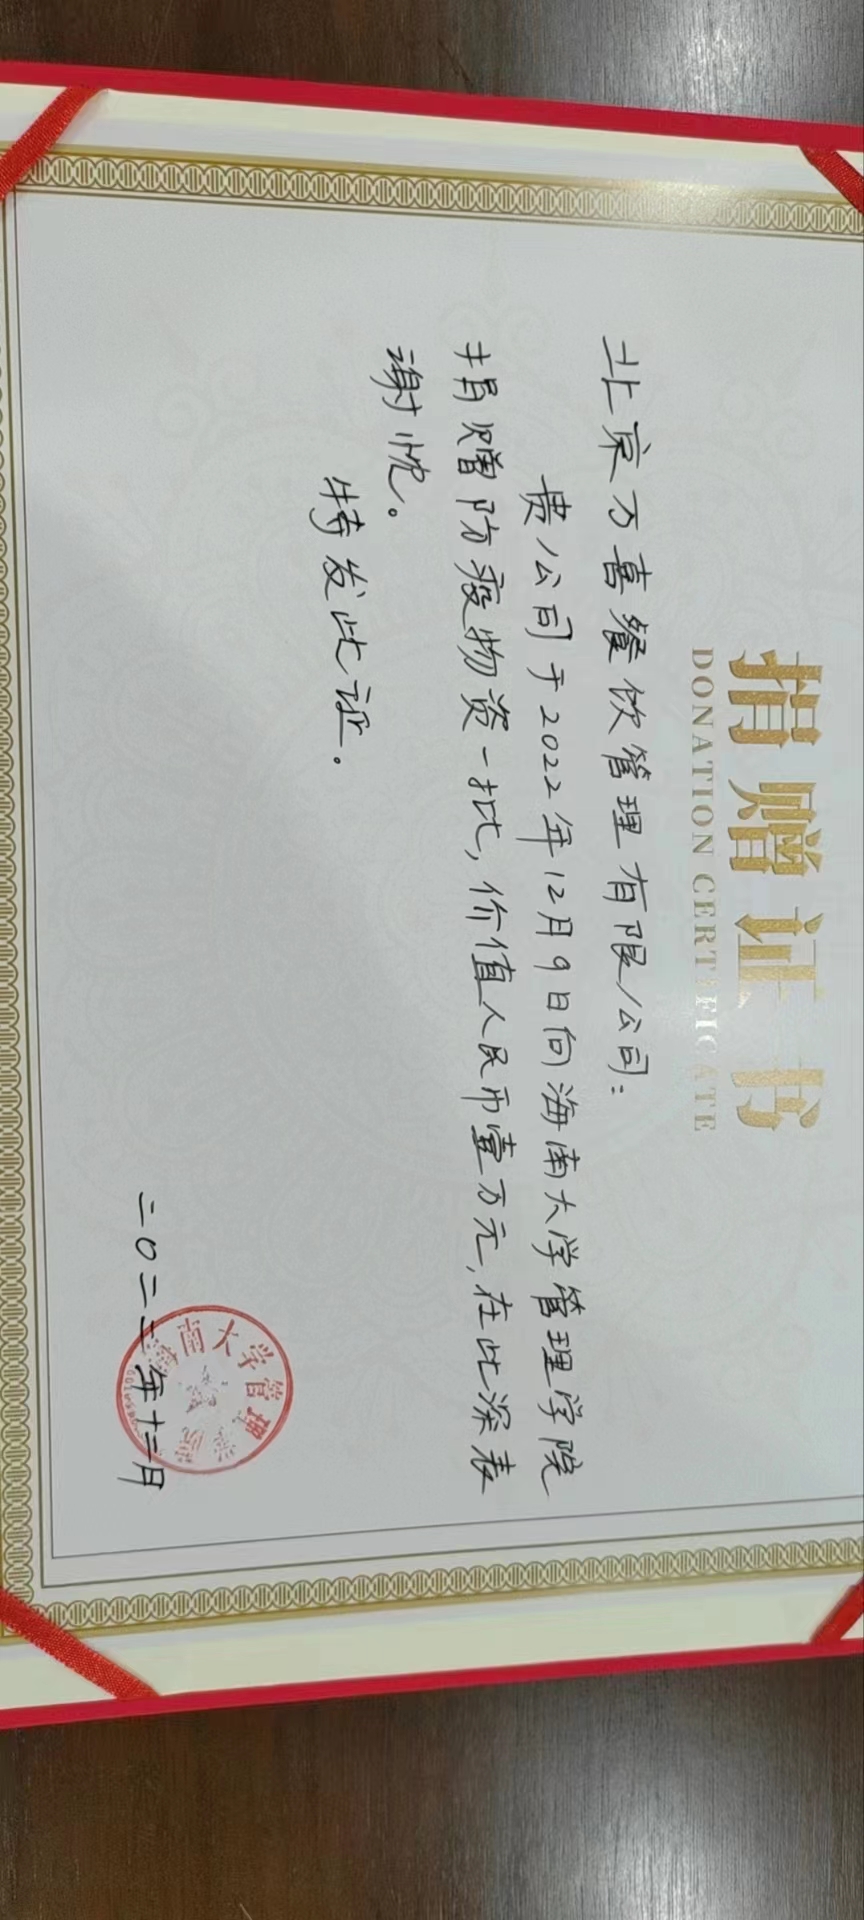 捐赠证书
DONATION CERTIFICATE
北京万喜餐饮管理有限公司:
贵公司于2022年12月9日向海南大学管理学院
捐赠防疫物资一批,价值人民币壹万元,在此深表
谢忱。
特发此证.
海南大学管理学院
二〇二二年十二月